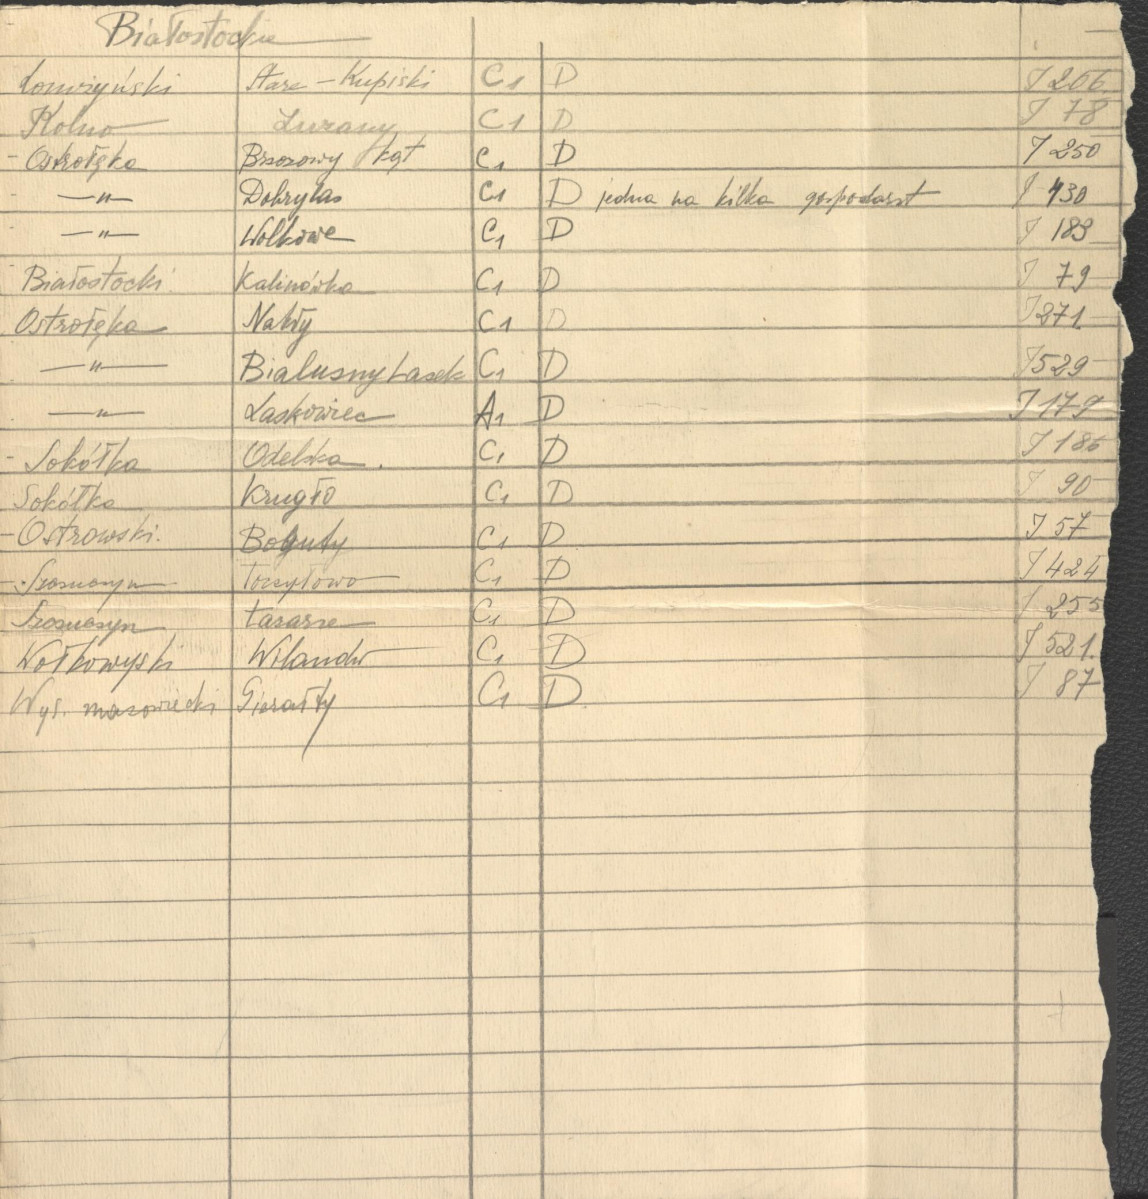 Białostockie
Łomżyński Stare-Kupiski C1 D J 206.
Kolno C1 D J 78
- Ostrołęka Brzozowy kąt C1 D J 250
- —„— Dobrylas C1 D jedna na kilka gospodarst J 430
- —„— Wolkowe C1 D J 183
Białostocki Kalinówka C1 D J 79
Ostrołęka Nakły C1 D J 271
—„— Białusny Lasek C1 D J 529
—„— Laskowiec A1 D J 179
- Sokółka Odelska. C1 D J 186
Sokółka Krugło C1 D J 90
- Ostrowski. Boguty C1 D J 57
- Szczuczyn C1 D J 424
Szczuczyn C1 D J 255
Wołkowyski C1 D J 521.
Wys. mazowiecki Gierałty C1 D. J 87